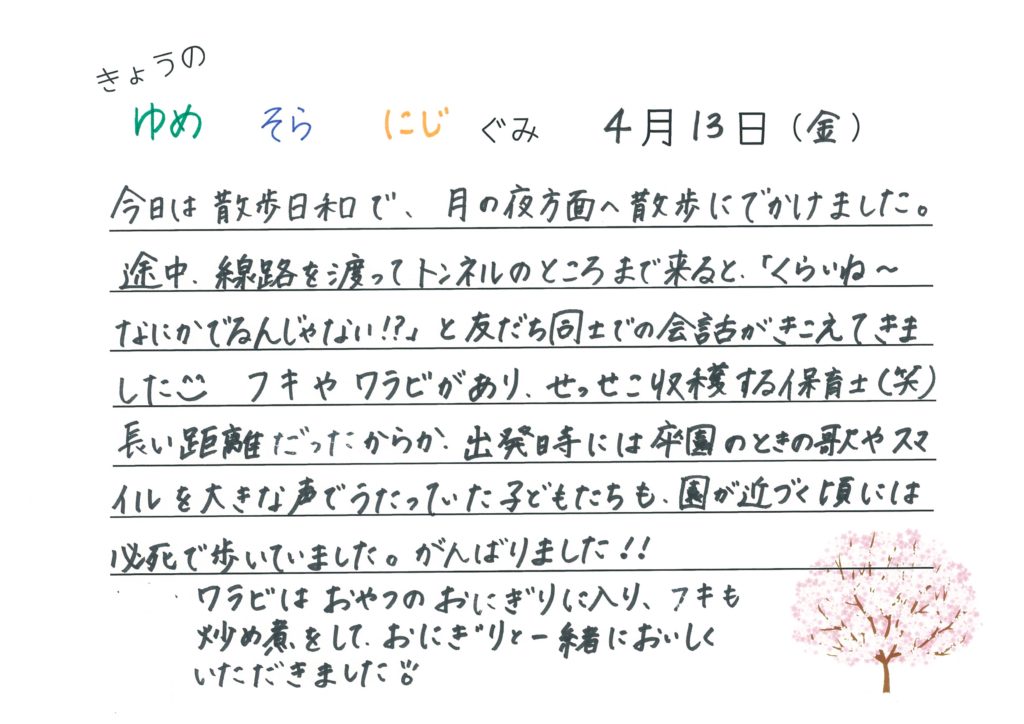 きょうの
ゆめ そら にじ ぐみ 4月13日（金）
今日は散歩日和で、月の夜方面へ散歩にでかけました。
途中、線路を渡ってトンネルのところまで来ると、「くらいね〜
なにかでるんじゃない!?」と友だち同士での会話がきこえてきま
した フキやワラビがあり、せっせこ収穫する保育士（笑）
長い距離だったからか、出発時には卒園のときの歌やスマ
イルを大きな声でうたっていた子どもたちも、園が近づく頃には
必死で歩いていました。がんばりました!!
ワラビはおやつのおにぎりに入り、フキも
炒め煮をして、おにぎりと一緒においしく
いただきました